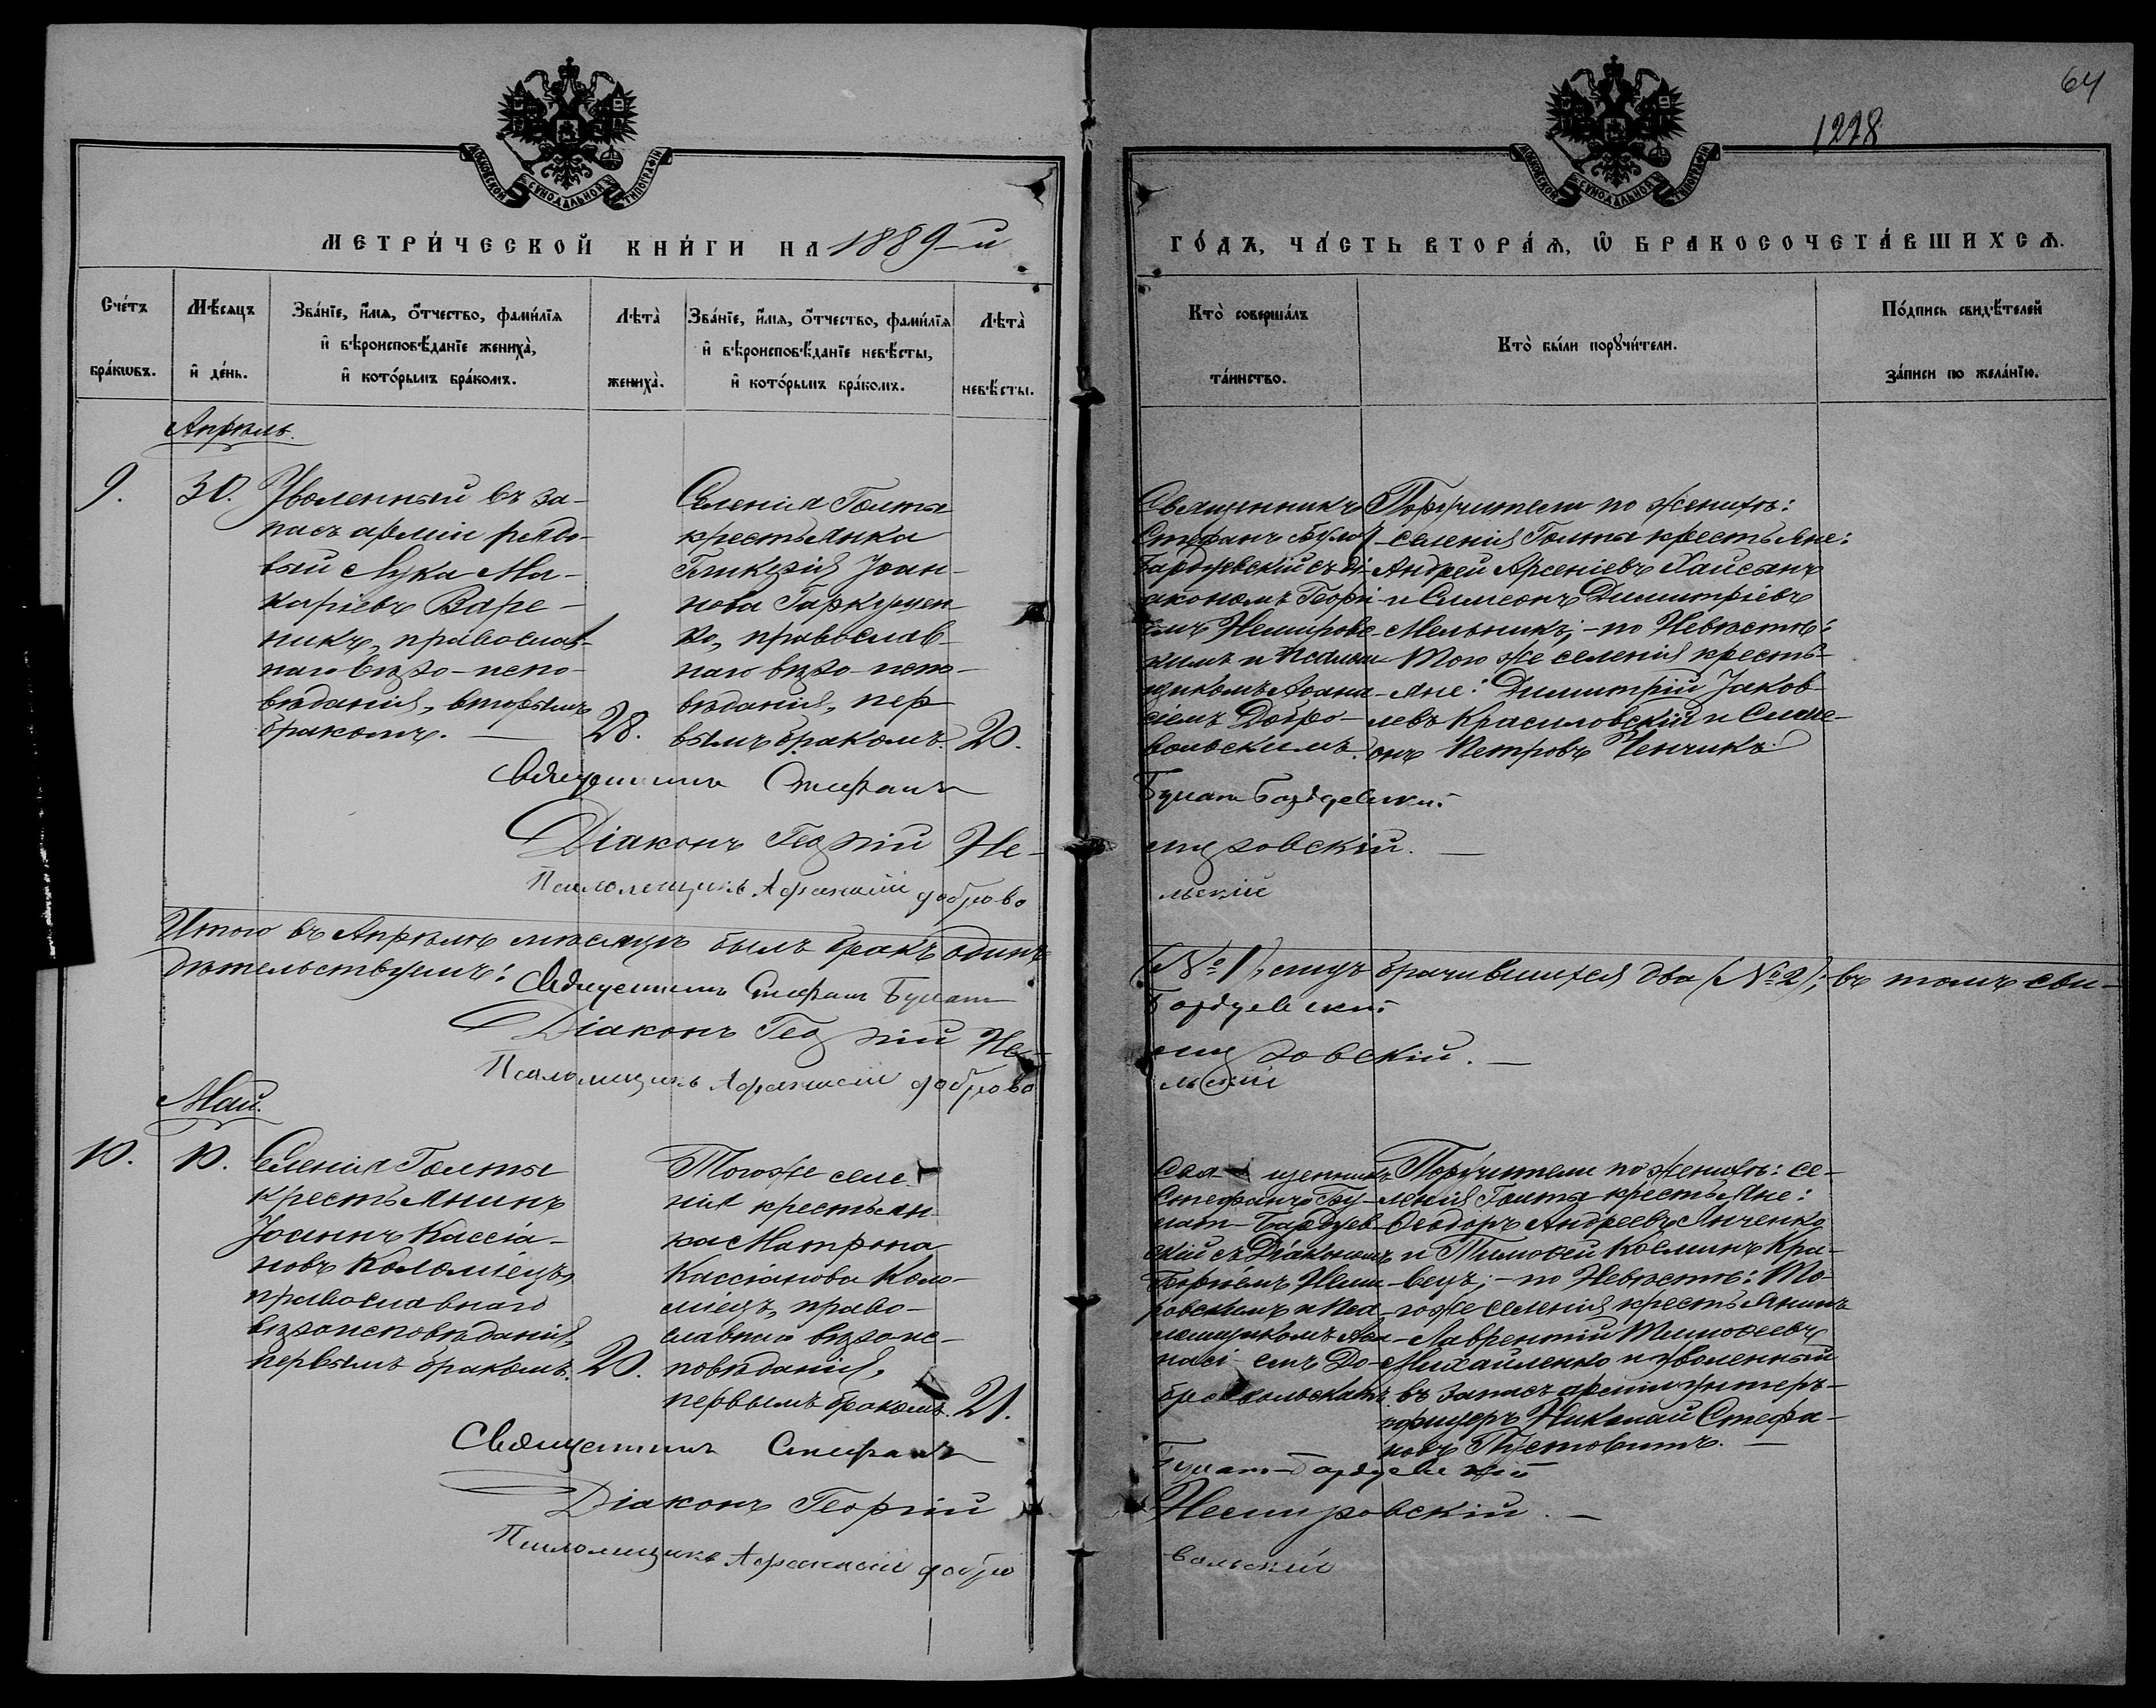 64
1278
МОСКОВСКОЙ СѴНОДАЛЬНОЙ ТИПОГРАФІИ
МОСКОВСКОЙ СѴНОДАЛЬНОЙ ТИПОГРАФІИ
МЕТРИ́ЧЕСКОЙ КНИ́ГИ НА 1889-й
ГО́ДЪ, ЧА́СТЬ ВТОРА́Я, Ѡ БРАКОСОЧЕТА́ВШИХСЯ.
Сче́тъ бра́кωвъ.
Мѣ́сяцъ и҆ де́нь.
Зва́нїе, и҆́мя, ѻ҆́тчество, фами́лїя
и҆ вѣроисповѣ́данїе жениха̀,
и҆ кото́рымъ бра́комъ.
Лѣта̀ жениха̀.
Зва́нїе, и҆́мя, ѻ҆́тчество, фами́лїя
и҆ вѣроисповѣ́данїе невѣ́сты,
и҆ кото́рымъ бра́комъ.
Лѣта̀ невѣ́сты.
Кто̀ соверша́лъ
та́инство.
Кто̀ бы́ли порꙋчи́тели.
По́дпись свидѣ́телей
за́писи по жела́нїю.
Апрѣль.
9.
30.
Уволенный въ за-
пасъ арміи рядо-
вый Лука Ма-
каріевъ Варе-
никъ, православ-
наго вѣро-испо-
вѣданія, вторымъ
бракомъ. —
28.
Селенія Голты
крестьянка
Гликерія Іоан-
нова Гаркушен-
ко, православ-
наго вѣро-испо-
вѣданія, пер-
вымъ бракомъ.
20.
Священникъ
Стефанъ Булат
Бардзевскій съ ді-
акономъ Георгі-
емъ Немировс-
кимъ и псалом-
щикомъ Афана-
сіемъ Добро-
вольскимъ.
Поручители по женихѣ:
селенія Голты крестьяне:
Андрей Арсеніевъ Хайсынъ
и Симеонъ Димитріевъ
Мельникъ; – по Невѣстѣ:
Того же селенія кресть-
яне: Димитрій Іаков-
левъ Красиловскій и Симе-
онъ Петровъ Ченчикъ.
Священникъ Стефанъ Булат-Бардзевскій
Діаконъ Георгій Немировскій. —
Псаломщикъ Афанасій Добровольскій
Итого въ Апрѣлѣ мѣсяцѣ былъ бракъ одинъ (№ 1), лицъ брачившихся два (№ 2); въ томъ сви-
дѣтельствуемъ: Священникъ Стефанъ Булат Бардзевскій
Діаконъ Георгій Немировскій. —
Псаломщикъ Афанасій Добровольскій
Май.
10.
10.
Селенія Голты
крестьянинъ
Іоаннъ Кассіа-
новъ Коломіецъ,
православнаго
вѣроисповѣданія,
первымъ бракомъ.
20.
Того же селе-
нія крестьян-
ка Матрона
Кассіанова Коло-
міецъ, право-
славнаго вѣроис-
повѣданія,
первымъ бракомъ.
21.
Священникъ
Стефанъ Бу-
лат-Бардзев-
скій съ Діакономъ
Георгіемъ Неми-
ровскимъ и Пса-
ломщикомъ Афа-
насіемъ До-
бровольскимъ.
Поручители по женихѣ: се-
ленія Голты крестьяне:
Ѳеодоръ Андреевъ Янченко
и Тимоѳей Косминъ Кра-
вецъ; – по Невѣстѣ: То-
гоже селенія крестьянинъ
Лаврентій Тимоѳеевъ
Михайленко и уволенный
въ запасъ арміи унтеръ-
офицеръ Николай Стефа-
новъ Пустовитъ. —
Священникъ Стефанъ Булат-Бардзевскій
Діаконъ Георгій Немировскій. —
Псаломщикъ Афанасій Добровольскій